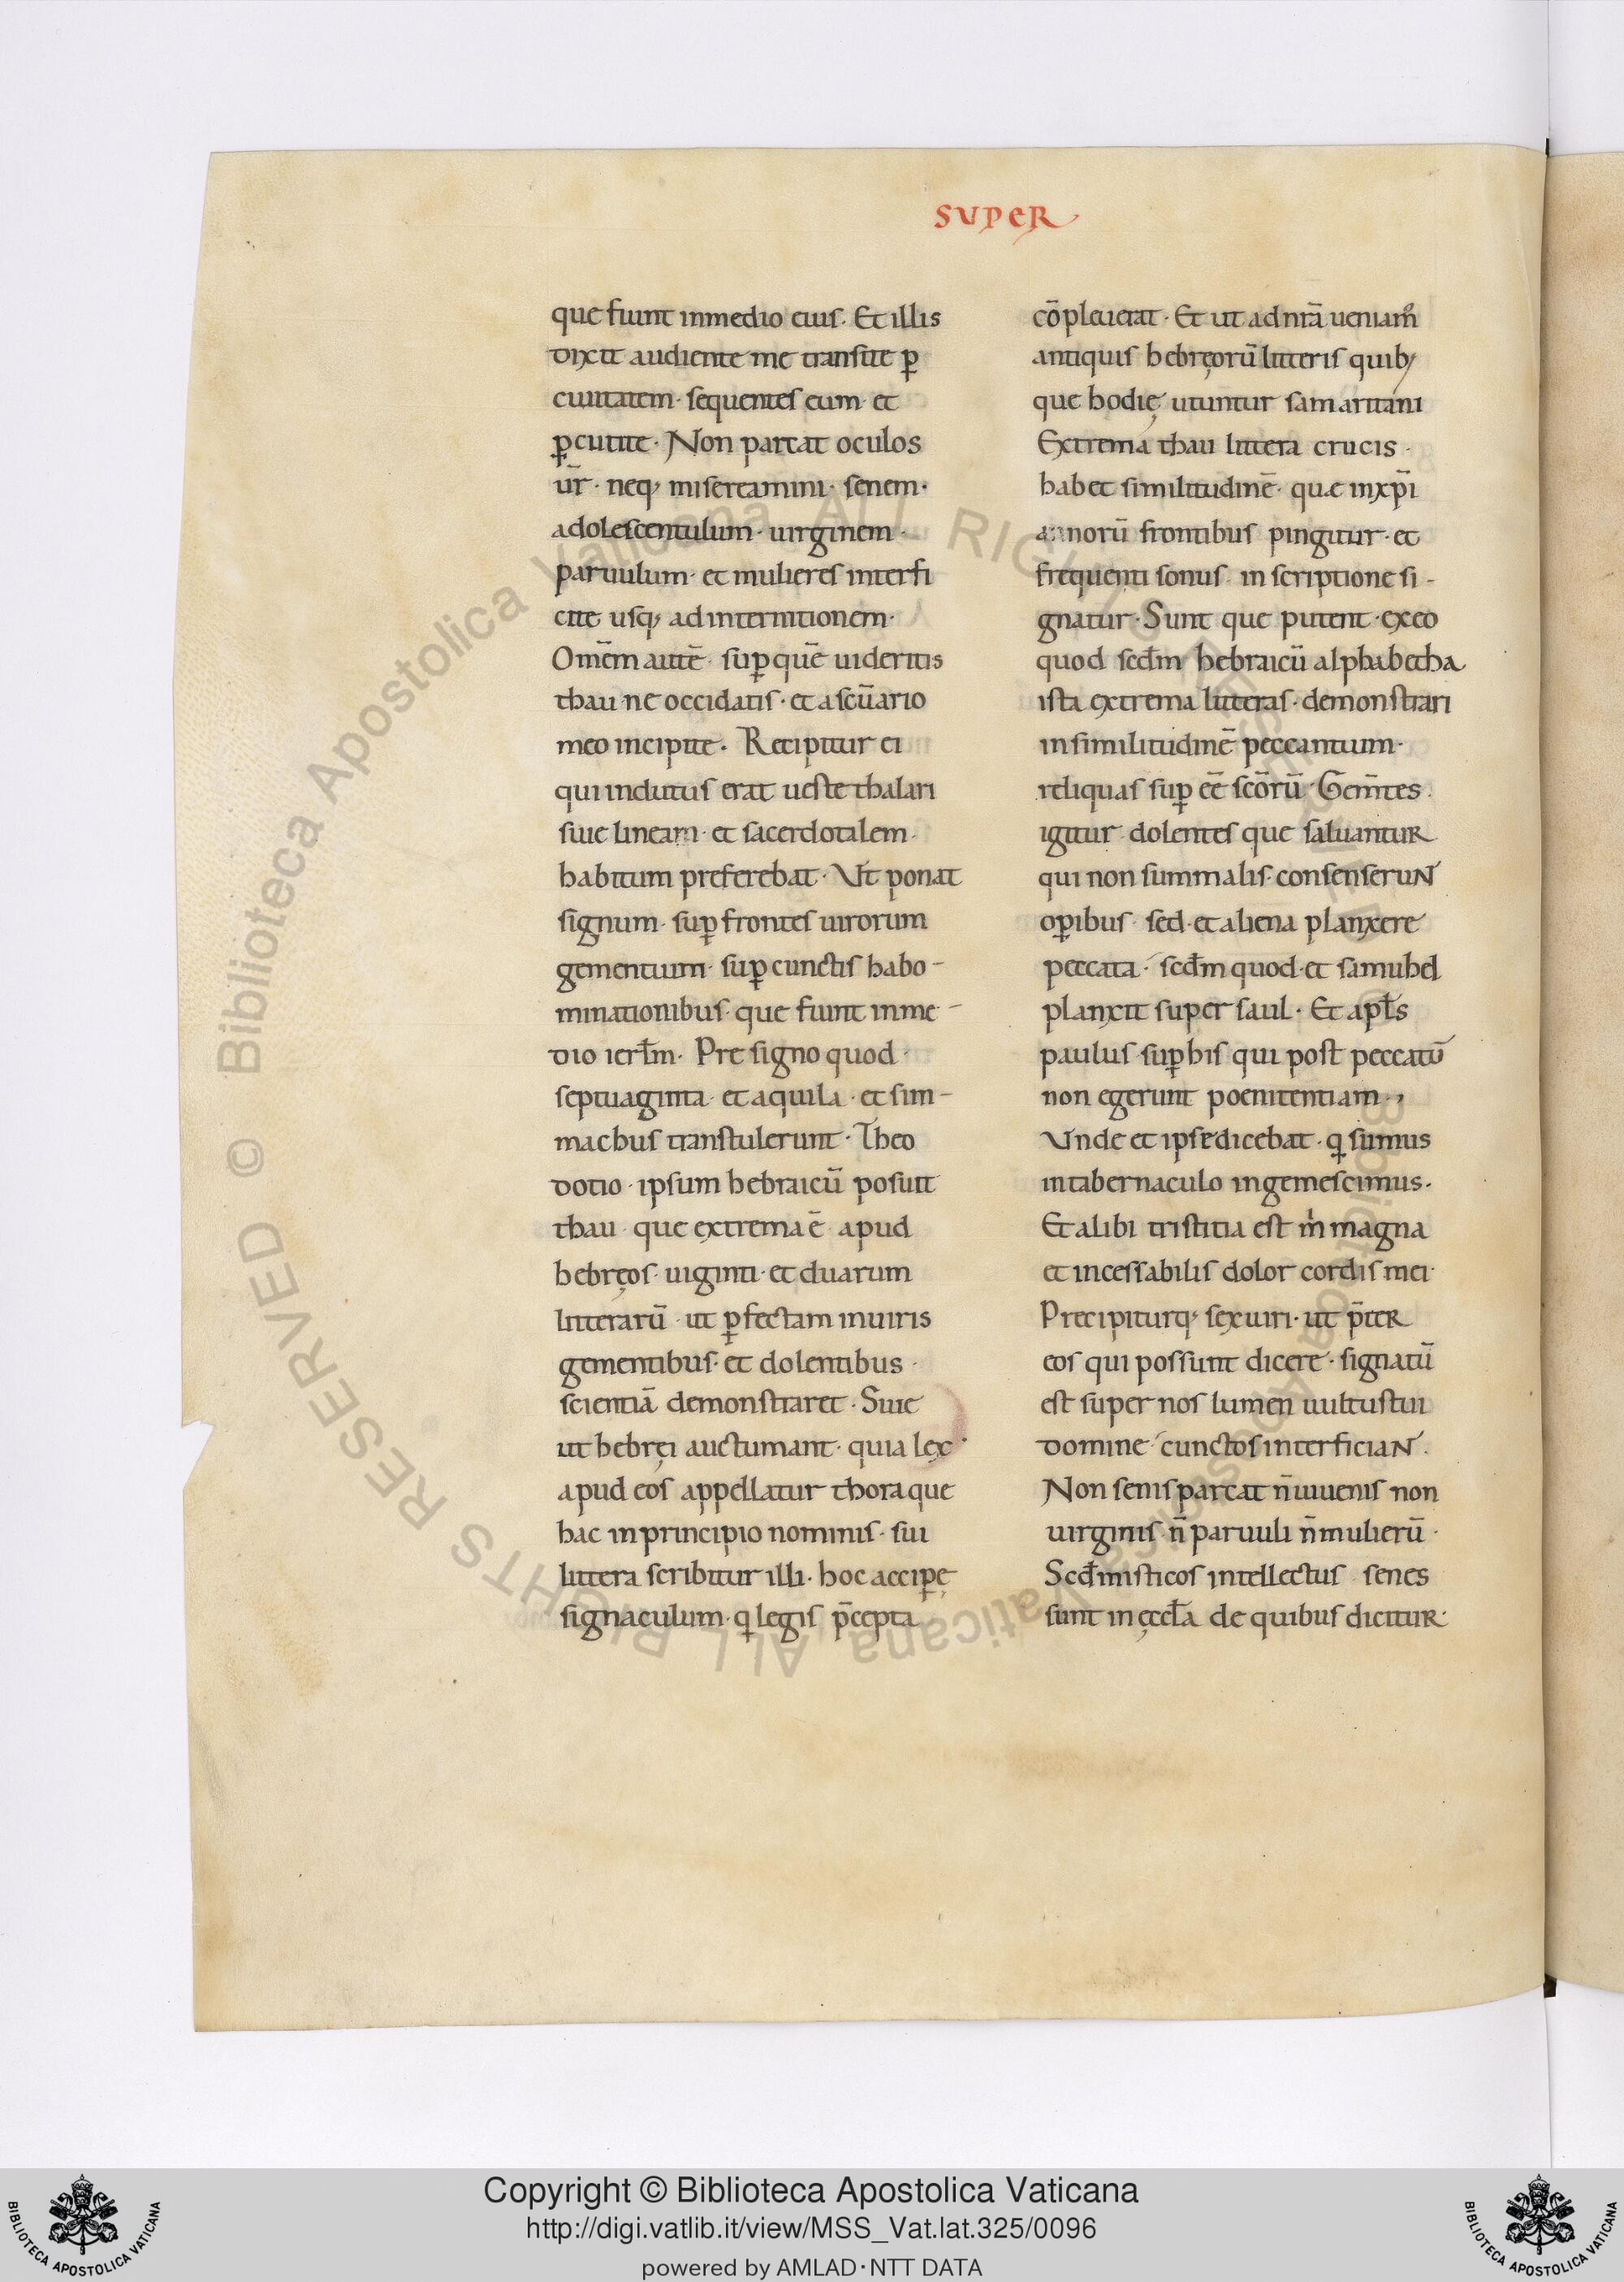 SUPER
que fiunt inmedio eius· Et illis
dixit audiente me transite ꝑ
ciuitatem· sequentes eum· et
ꝑcutite· Non parcat oculos
ur̄· neq; misereamini· senem·
adolescentulum· uirginem·
paruulum· et mulieres interfi
cite usq; adinternitionem·
Om̄em autē· suꝑ quē uideritis
thau ne occidatis· et ascūario
meo incipite· Recipitur ei
qui indutus erat ueste thalari
siue lineam· et sacerdotalem·
habitum preferebat· Ut ponat
signum· suꝑ frontes uirorum
gementium· suꝑ cunctis habo-
minationibus· que fiunt inme-
dio ierl̄m· Pre signo quod·
septuaginta· et aquila· et sim-
machus transtulerunt· Theo
dotio· ipsum hebraicū posuit
thau· que extrema ē· apud
hebręos· uiginti· et duarum
litterarū· ut ꝑfectam inuiris
gementibus· et dolentibus·
scientiā demonstraret· Siue
ut hebręi auctumant· quia lex·
apud eos appellatur thora que
hac inprincipio nominis· sui
littera scribitur illi· hoc acciꝑę
signaculum· ꝗ legis p̄cepta
cōpleuerat· Et ut ad nrā ueniam᷒
antiquis hebręorū litteris quib;
que hodię utuntur samaritani
Extrema thau littera crucis·
habet similitudinē· quæ inxp̄i
annorū frontibus pingitur· et
frequenti sonus· in scriptione si-
gnatur· Sunt que putent· exeo
quod scd̄m hebraicū alphabetha
ista extrema litteras· demonstrari
insimilitudinē peccantium·
reliquas suꝑ eē scōrū· Gem̄tes·
igitur· dolentes que saluantur
qui non summalis· consenseruN
oꝑibus· sed· et aliena planxere
peccata· scd̄m quod· et samuhel
planxit super saul· Et apl̄s
paulus suꝑ his qui post peccatū
non egerunt poenitentiam·,
Unde et ipse dicebat· ꝗ sumus
intabernaculo ingemescimus·
Et alibi tristitia est m̓ magna
et incessabilis dolor cordis mei·
Precipiturq; sexuiri· ut p̄ter
eos qui possunt dicere· signatū
est super nos lumen uultus tui
domine cunctos interficiaN·
Non senis parcat n̄ iuuenis non
uirginis n̄ paruuli n̄ mulierū·
Scd̄m misticos intellectus senes
sunt in ęccl̄a de quibus dicitur·
© Biblioteca Apostolica Vaticana ALL RIGHTS RESERVED © Biblioteca Apostolica Vaticana ALL RIGHTS RESERVED
Copyright © Biblioteca Apostolica Vaticana
http://digi.vatlib.it/view/MSS_Vat.lat.325/0096
powered by AMLAD·NTT DATA
BIBLIOTECA APOSTOLICA VATICANA
BIBLIOTECA APOSTOLICA VATICANA